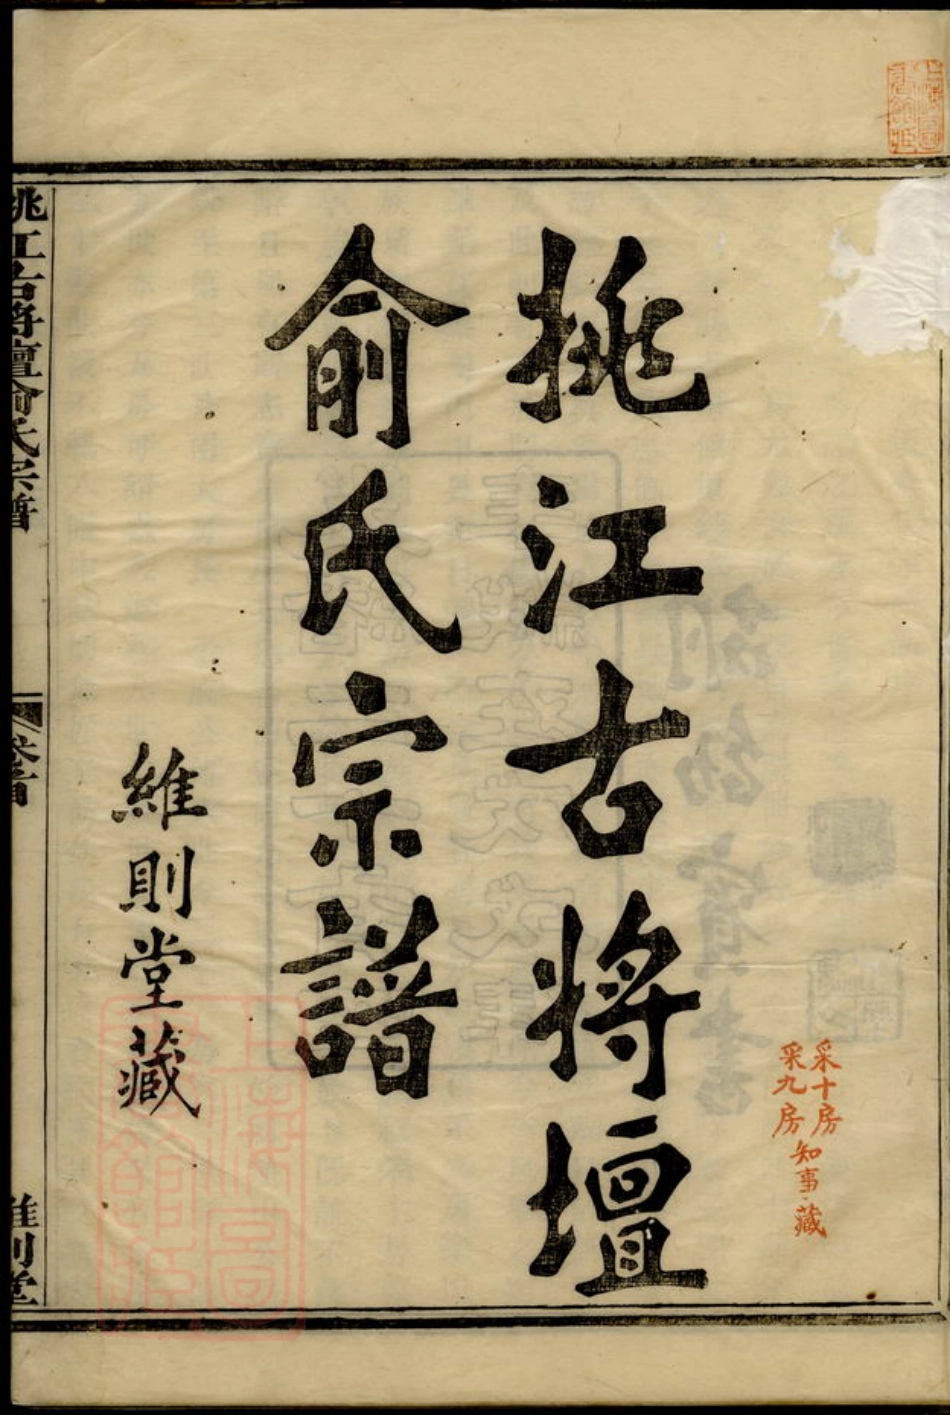 采十房
采九房
知事藏
挑江古將壇
俞氏宗譜
維則堂藏
挑江古將壇俞氏宗譜
卷首
維則堂